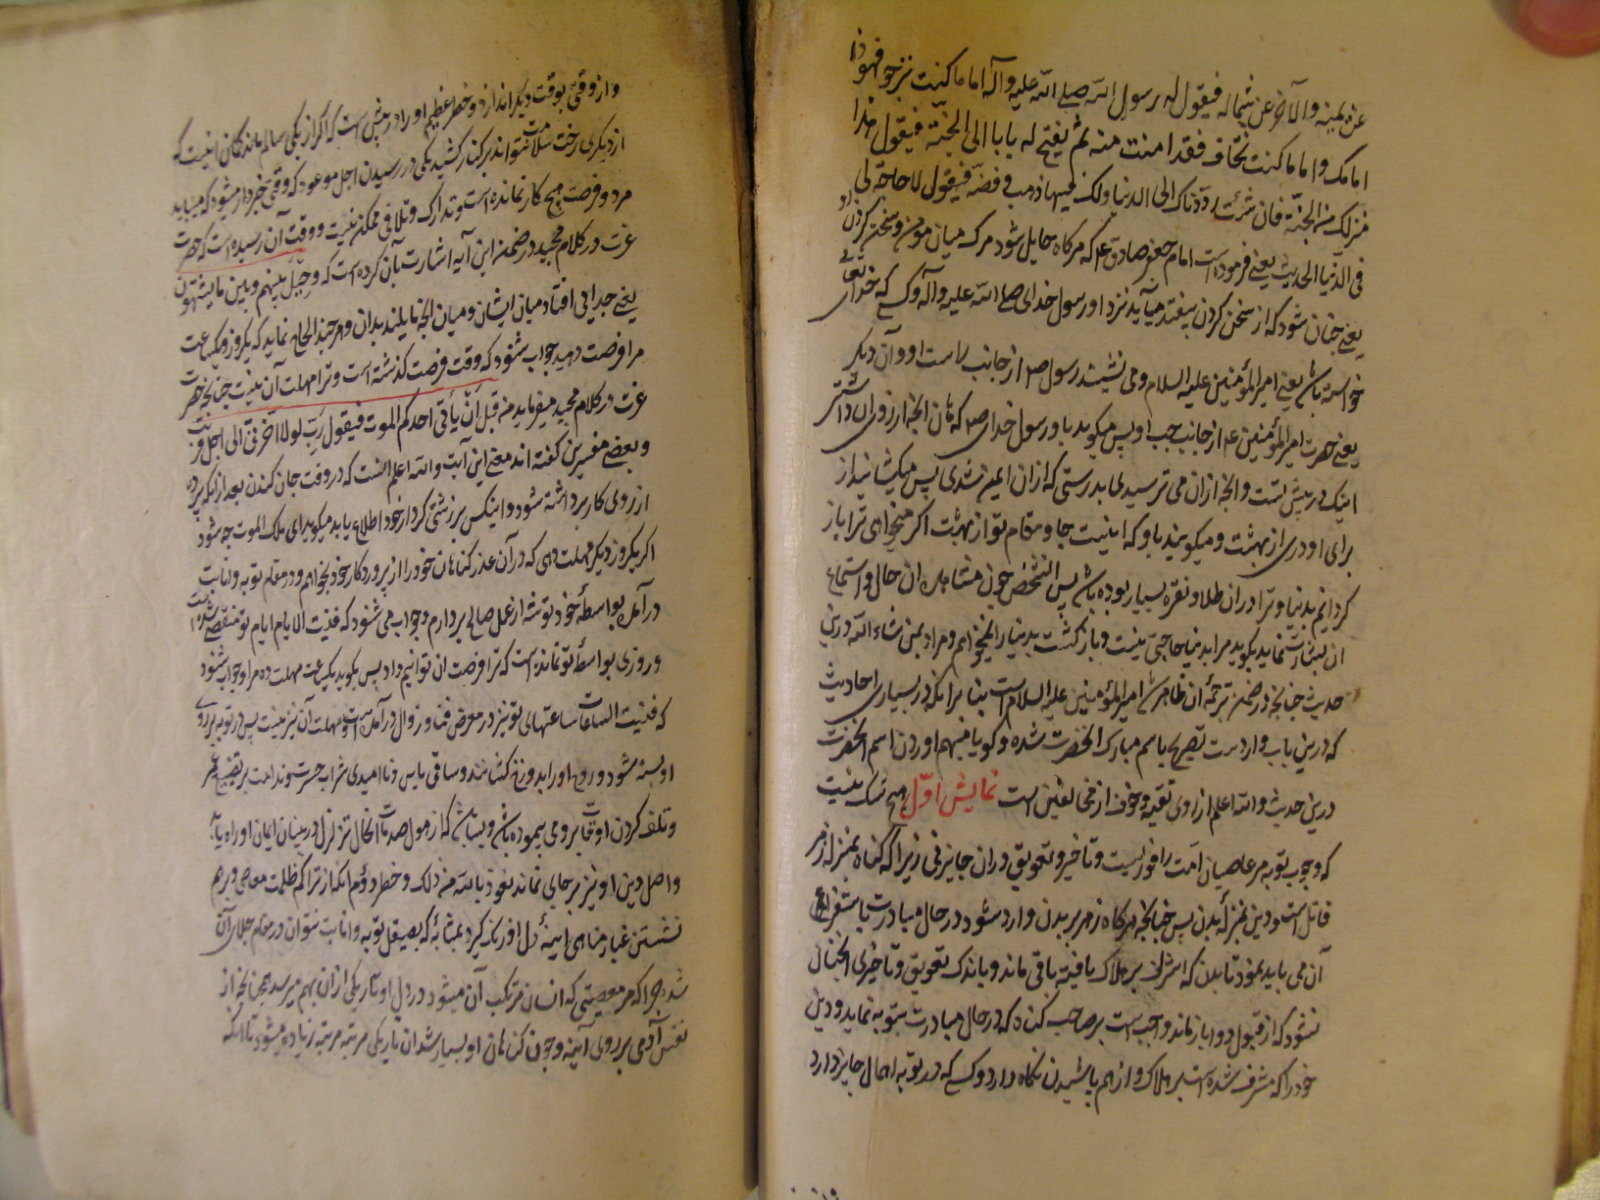 عن یمینه والآخر عن شماله فیقول له رسول الله صلی الله علیه وآله اما ما کنت ترجو فهوذا
امامک واما ما کنت تخاف فقد امنت منه ثم یفتح له بابا الی الجنة فیقول هذا
منزلک من الجنّة فان شئت رددناک الی الدنیا ولک فیها ذهب و فضة فیقول لا حاجة لی
فی الدّنیا الحدیث یعنی فرموده است امام جعفر صادق ع که هرکاه حایل شود مرک میان مؤمن و سخن کردن او
یعنی چنان شود که از سخن کردن بیفتد میآید نزد او رسول خدای صلی الله علیه وآله وکسی که خدای تعالی
خواسته باشد یعنی امیر المؤمنین علیه السلام و می نشیند رسول ص از جانب راست او و آن دیکر
یعنی حضرت امیر المؤمنین ع از جانب چپ او پس میکوید باو رسول خدای ص که هان انچه ارزوی ان داشتی
اینک در پیش تست وانچه ازان می ترسیدی بدرستی که ازان ایمن شدی پس میکشایند از
برای او دری از بهشت و میکویند باو که اینست جا و مقام تو از بهشت اکر میخواهی ترا باز
کردانیم بدنیا و ترا دران طلا و نقره بسیار بوده باشد پس آن شخص چون مشاهده ان حال و استماع
ان بشارت نماید بکوید مرا بدنیا حاجتی نیست و بازکشت بدنیا را نمیخواهم و مراد بمن شاء الله درین
حدیث چنانچه در ضمن ترجمهٔ ان ظاهر شد امیر المؤمنین علیه السلام است بنا برانکه در بسیاری احادیث
که درین باب وارد است تصریح باسم مبارک انحضرت شده و کویا مبهم اوردن اسم انحضرت
درین حدیث والله اعلم از راوی تقیه و خوف از مخالفین است نمایش اوّل هیچ شک نیست
که وجوب توبه بر عاصیان امت را فوریست و تاخیر و تعویق دران جایز نی زیرا که کناه بمنزله زهر
قاتل است و دین بمنزلهٔ بدن پس چنانچه هرکاه زهر بر بدن وارد شود در حال مبادرت باستفراغ
آن می باید نمود تا بدن که مشرف بر هلاک یافته باقی ماند و باندک تعویق و تاخیری انچنان
نشود که از قبول دوا باز ماند واجب است بر صاحب کناه که در حال مبادرت بتوبه نماید و دین
خود را که مشرف شده است بر هلاک و از هم پاشیدن نکاه دارد و کسی که در توبه اهمال جایز دارد
و از وقتی بوقت دیکر اندازد دو خطر عظیم او را در پیش است که اکر از یکی سالم ماند کمان انیست که
از دیکری رخت سلامت نتواند بر کنار کشید یکی در رسیدن اجل موعود که وقتی خبردار میشود که میباید
مرد و فرصت هیچ کار نمانده است و تدارک و تلافی ممکن نیست و وقت آن رسیده است که حضرت
عزت در کلام مجید در ضمن این آیه اشارت بآن کرده است که وحیل بینهم وبین ما یشتهون
یعنی جدایی افتاد میان ایشان و میان انچه مایلند بدان و هرچند الحاح نماید که یکروز و یکساعت
مرا فرصت دهید جواب شنود که وقت فرصت کذشته است و ترا مهلت آن نیست چنانچه حضرت
عزت در کلام مجید میفرماید من قبل ان یأتی احدکم الموت فیقول رب لولا اخّرتنی الی اجل قریب
و بعضی مفسرین کفته اند معنی این آیت والله اعلم انست که در وقت جان کندن بعد از انکه پرده
از روی کار برداشته شود و اینکس بر زشتی کردار خود اطلاع یابد میکوید ای ملک الموت چه شود
اکر یکروز دیکر مهلت دهی که در آن عذر کناهان خود را از پروردکار خود بخواهم و در مقام توبه و انابت
درآمده بواسطهٔ خود توشه از عمل صالح بردارم جواب می شنود که فنیت الایام ایام تو منقضی شد
و روزی بواسطهٔ تو نمانده است که ترا فرصت ان توانیم داد پس بکوید یکساعت مهلت ده مرا جواب شنود
که فنیت الساعات ساعتهای تو نیز در معرض فنا و زوال درآمده است و مهلت آن نیز نیست پس در توبه بر روی
او بسته شود و روح او را بدوزخ کشانند و ساقی یاس و ناامیدی شراب حسرت و ندامت بر تضییع عمر
و تلف کردن اوقات بر وی پیموده باشد و بسا باشد که از هول صدمات انحال تزلزل در بنیان ایمان او راه یابد
و اصل دین او نیز بر جای نماند نعوذ بالله من ذلک و خطر دوم انکه از تراکم ظلمت معاصی و بر هم
نشستن غبار مناهی اینهٔ دل او زنک کیرد بمثابهٔ که بصیقل توبه و انابت نتوان در مقام جلای آن
شد چرا که هر معصیتی که انسان مرتکب آن میشود در دل او تاریکی ازان بهم میرسد همچنانچه از
نفس آدمی بر روی آینه و چون کناهان او بسیار شد ان تاریکی مرتبه مرتبه زیاده میشود تا انکه